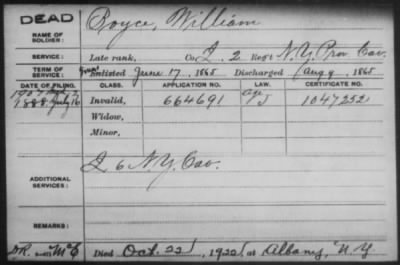 DEAD
Royce, William
NAME OF SOLDIER:
SERVICE: Late rank, Co. L 2 Reg't N.Y. Prov Cav.
TERM OF SERVICE: Enlisted June 17, 1865 Discharged Aug 9, 1865
DATE OF FILING. CLASS. APPLICATION NO. LAW. CERTIFICATE NO.
1907
1888 July 16 Invalid, 664691 1047252
Widow,
Minor,
L 6 N.Y. Cav.
ADDITIONAL SERVICES:
REMARKS:
Died Oct. 22, 1922, at Albany, N.Y.